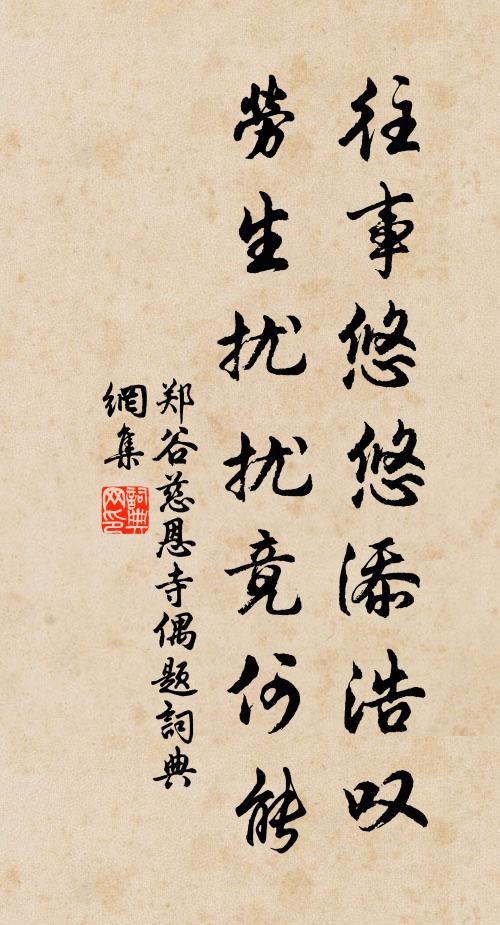 往事悠悠添浩叹
勞生扰扰竟何能
郑谷慈恩寺偶题詞典
網集
詞典网印